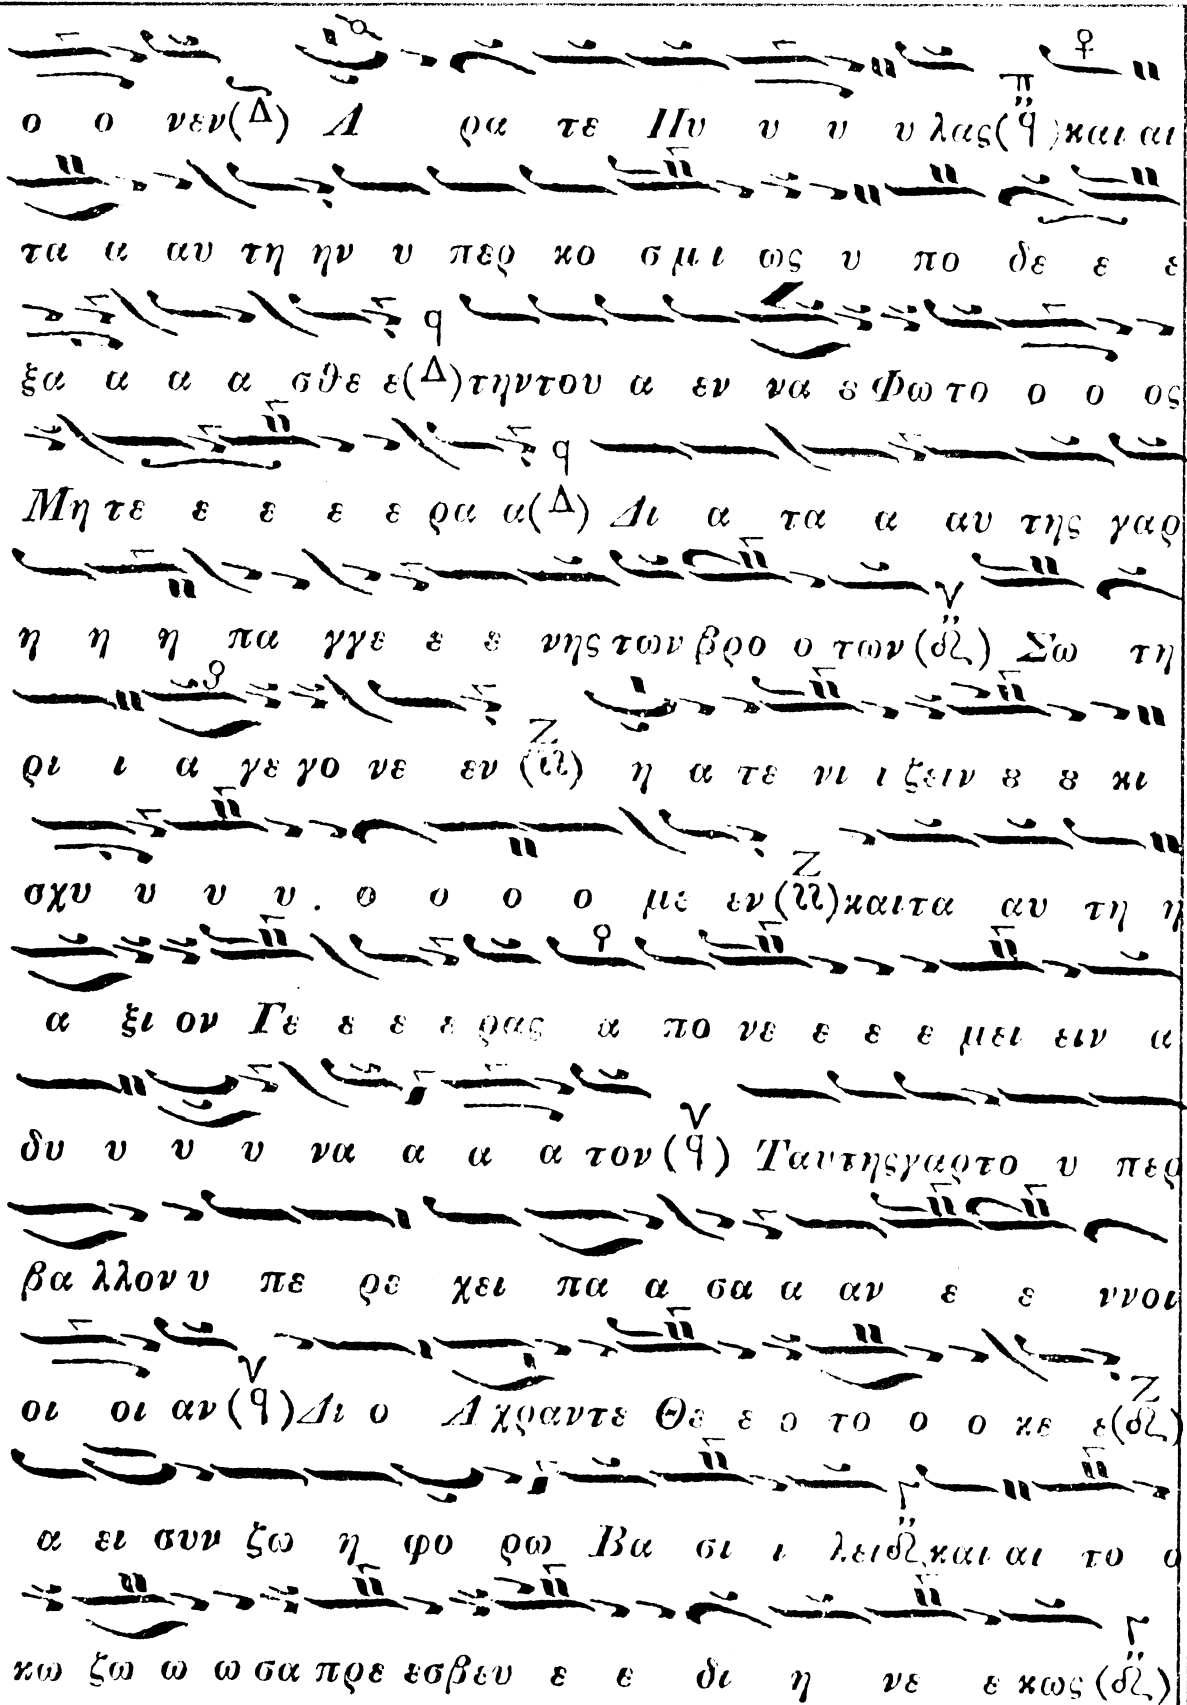 ο ο νεν(Δ) Α ρα τε Πυ υ υ υ λας(π q)και αι
τα α αυ τη ην υ περ κο σμι ως υ πο δε ε ε
ξα α α α σθε ε(Δ)τηντου α εν να ȣ Φω το ο ο ος
Μη τε ε ε ε ε ρα α(Δ) Δι α τα α αυ της γαρ
η η η πα γγε ε ε νης των βρο ο των (ν δι) Σω τη
ρι ι α γε γο νε εν (Ζ) η α τε νι ι ζειν ȣ ȣ κι
σχυ υ υ υ . ο ο ο ο με εν(Ζ)καιτα αυ τη η
α ξι ον Γε ε ε ε ρας α πο νε ε ε ε μει ειν α
δυ υ υ υ να α α α τον (ν q) Ταυτηςγαρτο υ περ
βα λλον υ πε ρε χει πα α σα α αν ε ε ννοι
οι οι αν (ν q) Δι ο Αχραντε Θε ε ο το ο ο κε ε(Ζ δι)
α ει συν ζω η φο ρω Βα σι ι λει Γ δι και αι το ο
κω ζω ω ω σα πρε εσβευ ε ε δι η νε ε κως (Γ δι)